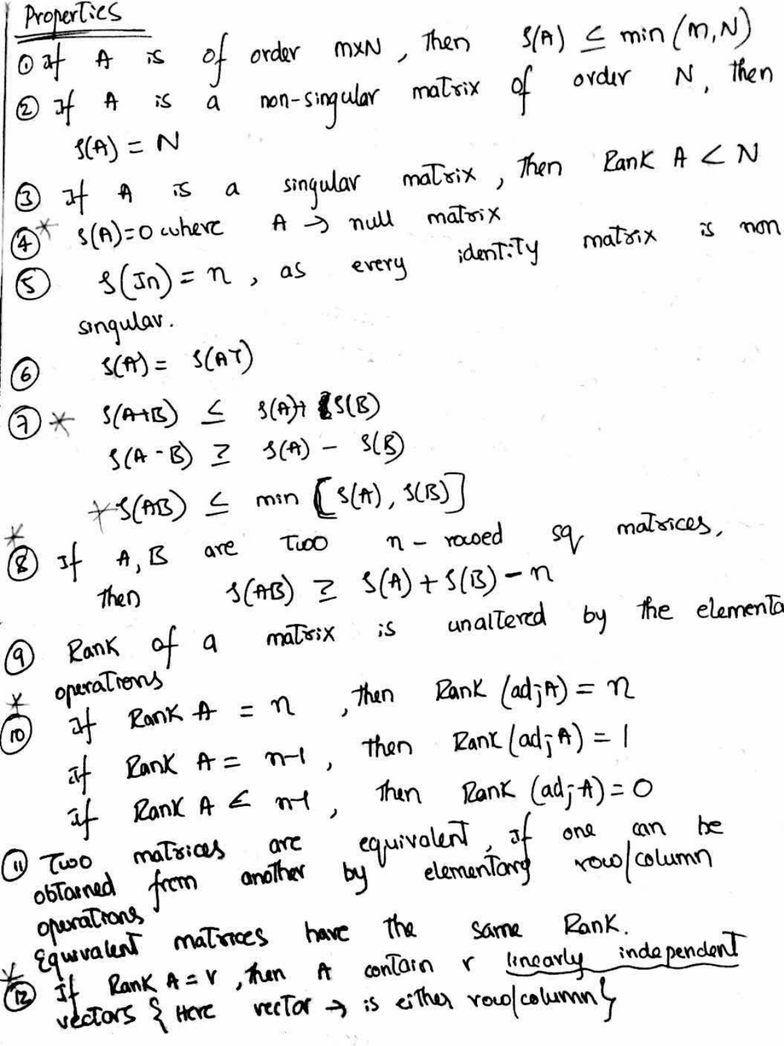 Properties
① If A is of order m×N, then ρ(A) ≤ min(m,N)
② If A is a non-singular matrix of order N, then
ρ(A) = N
③ If A is a singular matrix, then Rank A < N
④* ρ(A)=0 where A → null matrix
⑤ ρ(In) = n, as every identity matrix is non
singular.
⑥ ρ(A) = ρ(AT)
⑦ * ρ(A+B) ≤ ρ(A)+ ρ(B)
ρ(A-B) ≥ ρ(A) - ρ(B)
*ρ(AB) ≤ min [ρ(A), ρ(B)]
*⑧ If A, B are two n-rowed sq matrices,
then ρ(AB) ≥ ρ(A) + ρ(B) - n
⑨ Rank of a matrix is unaltered by the elementa
operations
*⑩ If Rank A = n, then Rank (adj A) = n
if Rank A = n-1, then Rank (adj A) = 1
if Rank A < n-1, then Rank (adj A) = 0
⑪ Two matrices are equivalent, if one can be
obtained from another by elementary row/column
operations
Equivalent matrices have the same Rank.
*⑫ If Rank A = r, then A contain r linearly independent
vectors { Here vector → is either row/column }